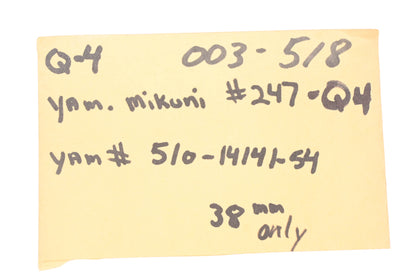 Q-4 003-518
Yam. Mikuni #247-Q4
Yam# 510-14141-54
38 mm
only